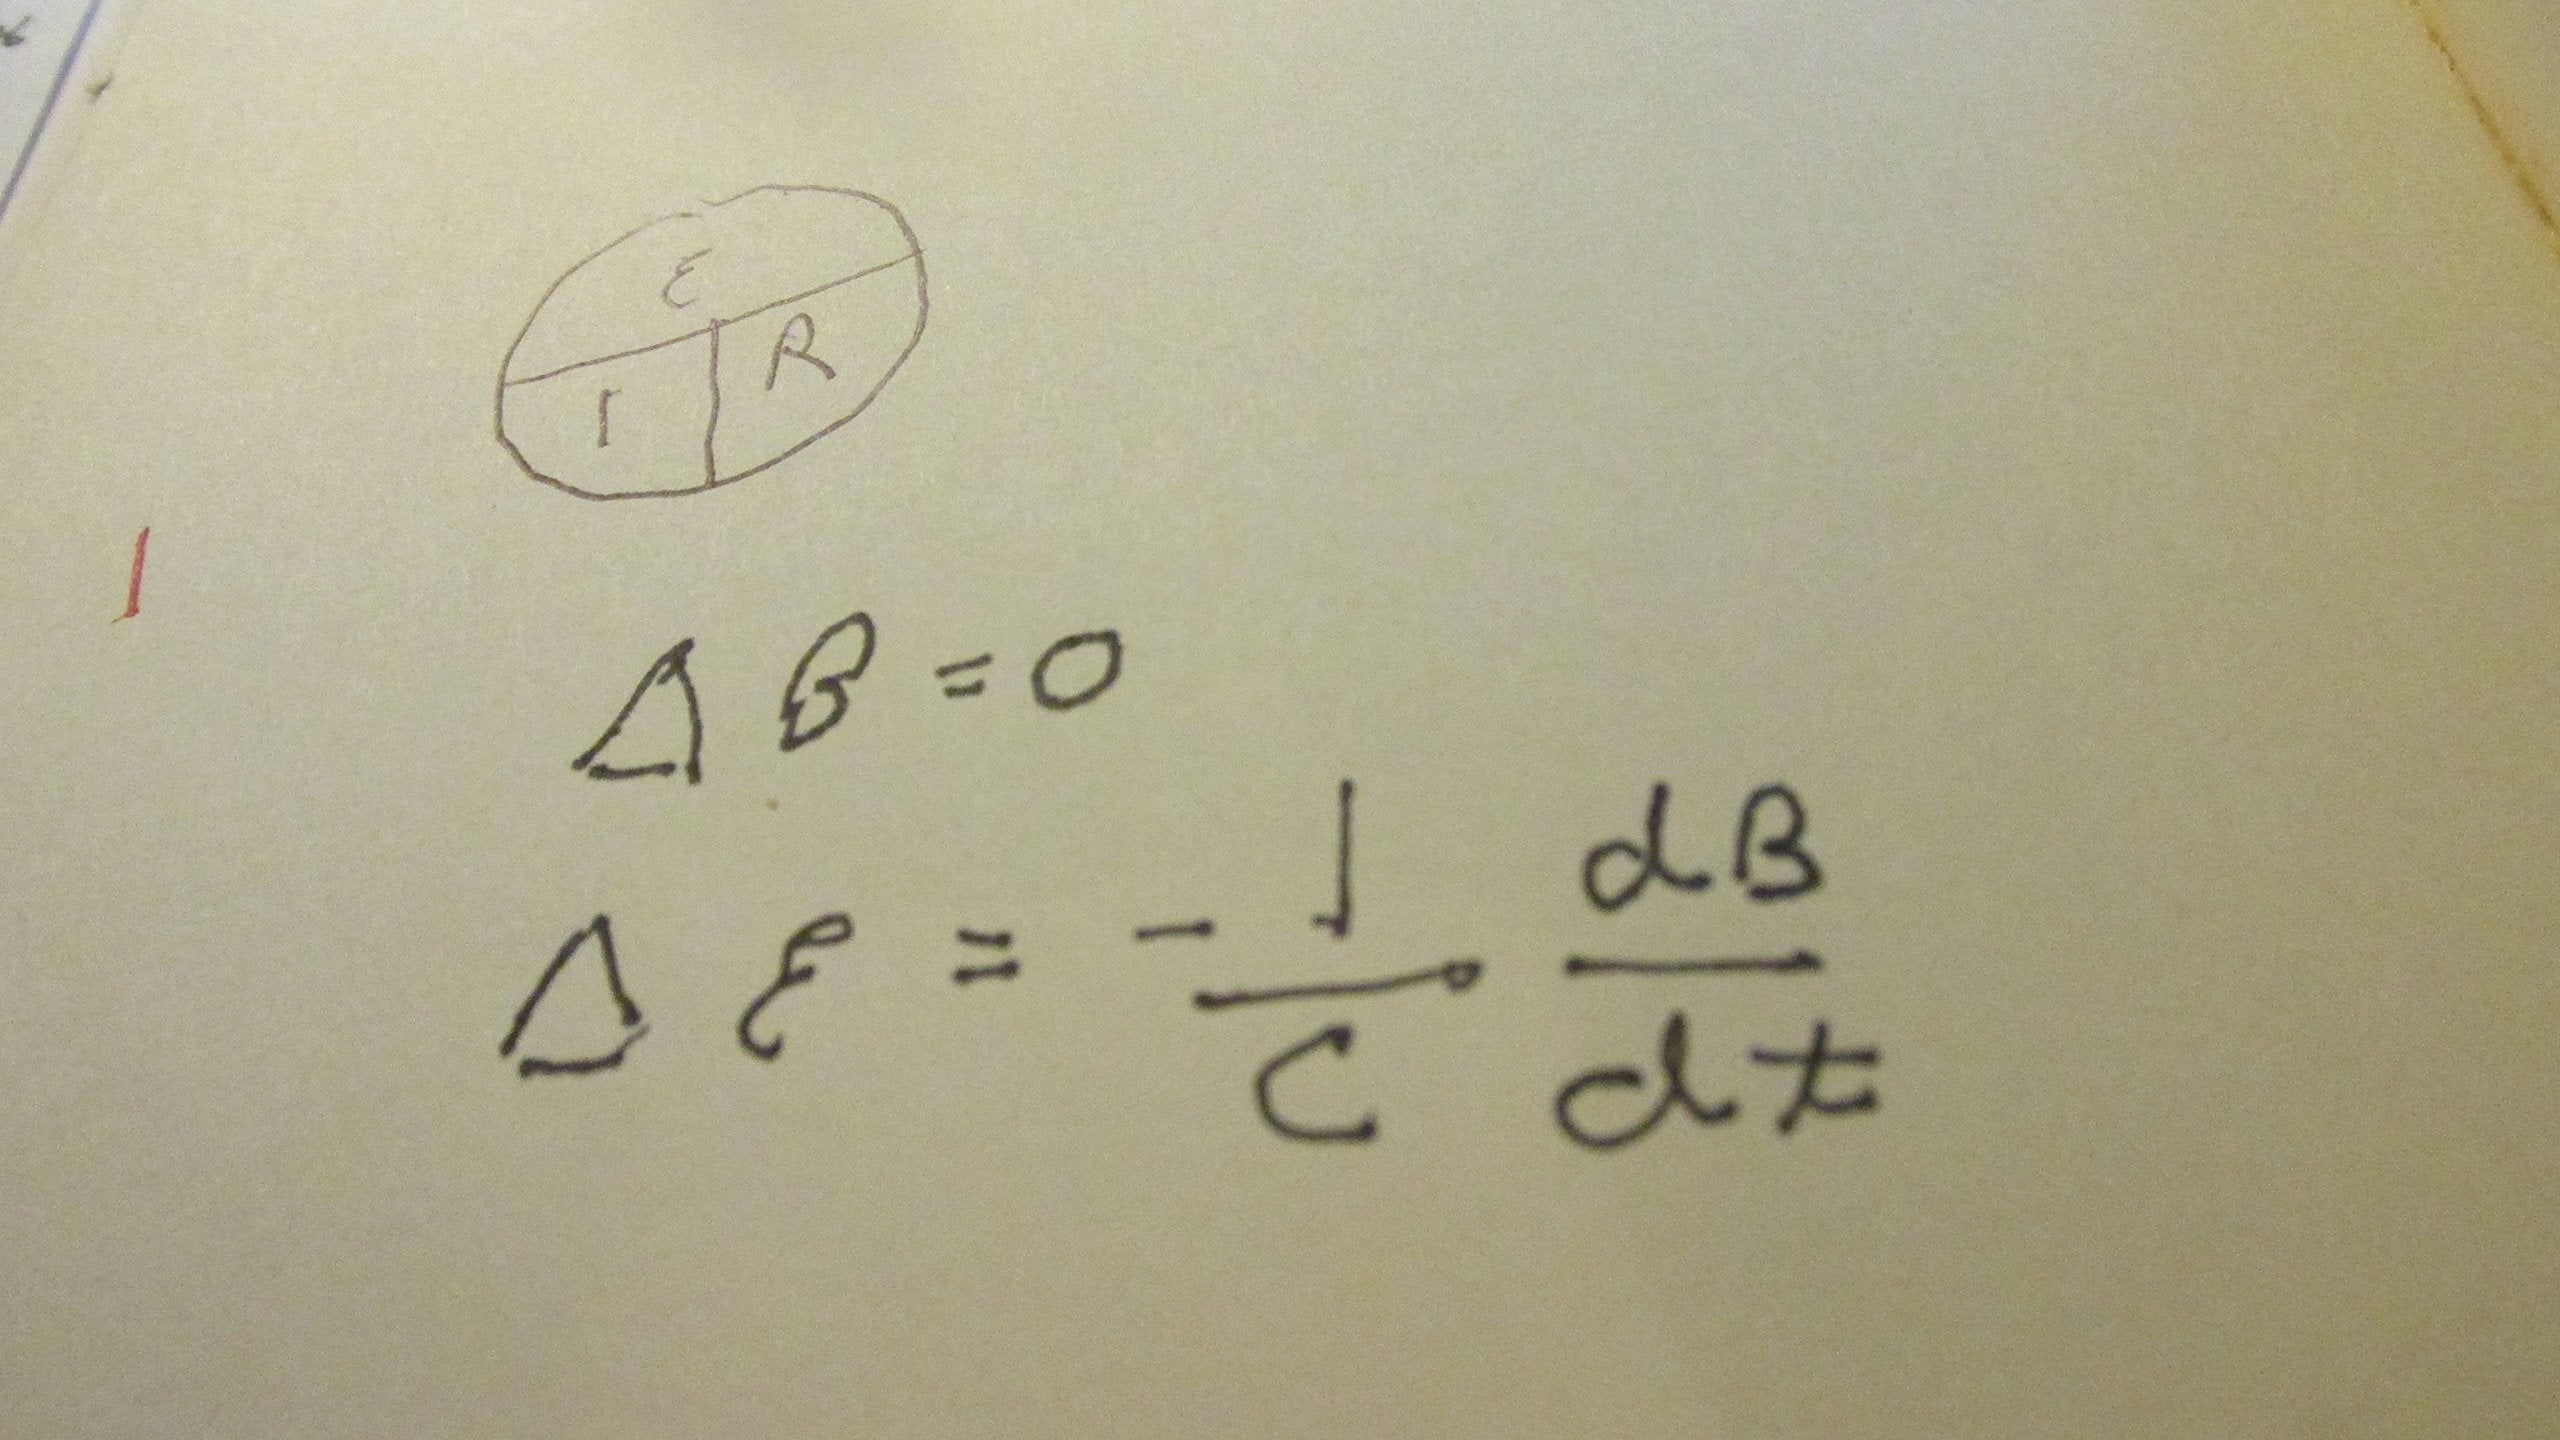 E
I R
1
Δ B = 0
Δ E = - 1/C dB/dt